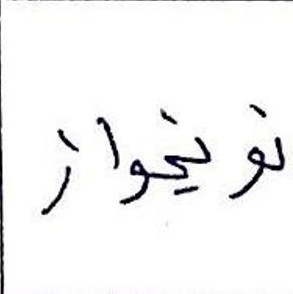 نویخواز